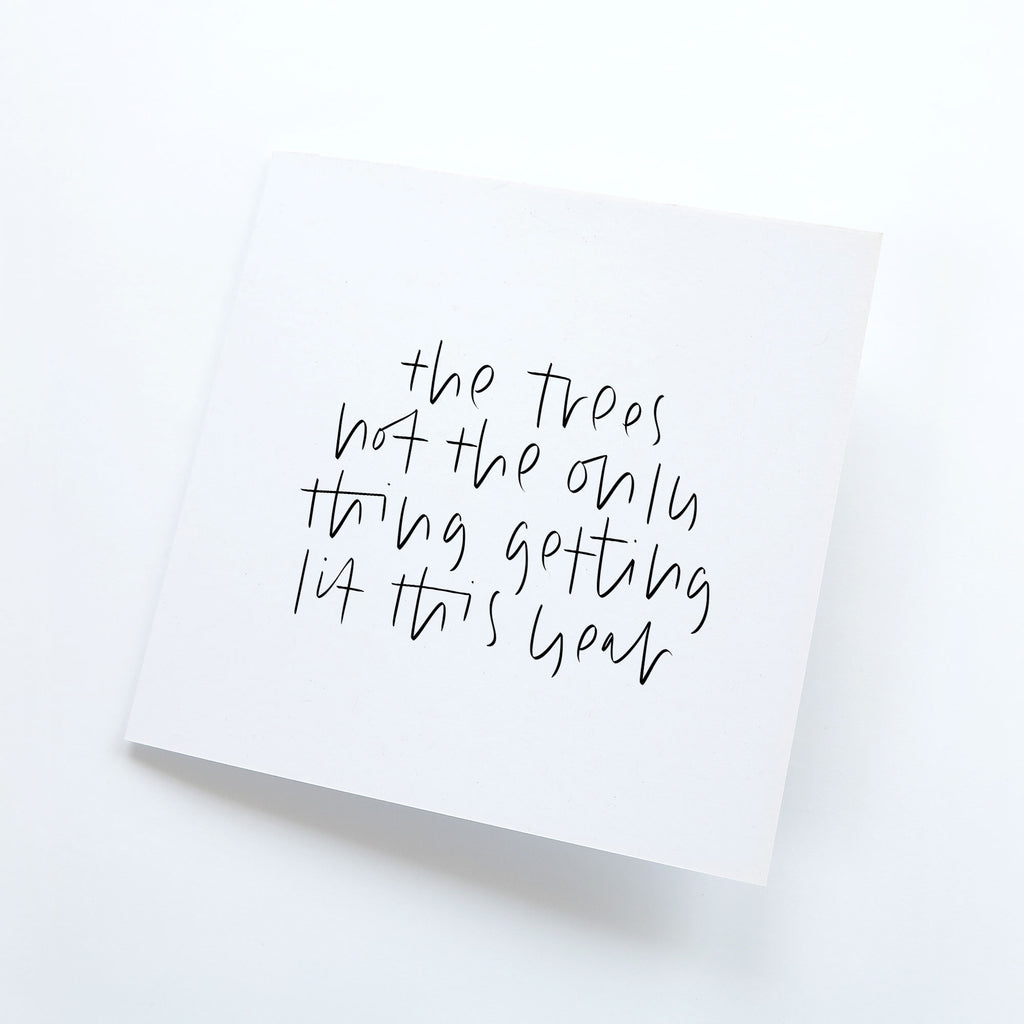 the trees
not the only
thing getting
lit this year